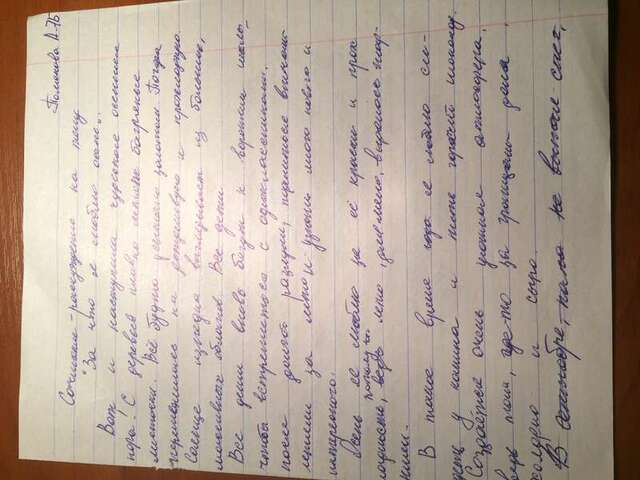 Томакова А. 7Б
Сочинение-рассуждение на тему
"За что я люблю осень".
Вот и наступила чудесная осенняя
пора. С деревьев плавно летят багряные
листочки. Всё будто усыпано золотом. Погода
переменилась на дождливую и прохладную.
Солнце изредка выглядывает из больших,
массивных облаков. Все дети
Все дети вновь бегут к воротам школы,
чтобы встретиться с одноклассниками,
после долгой разлуки, поделиться впечат-
лениями за лето и узнать много нового и
интересного.
Осень я люблю за её краски и прох
ладность, потому что ведь лето, для меня, выдалось жар-
ким.
В такое время года я люблю си-
деть у камина и пить горячий шоколад.
Создаётся очень уютная атмосфера,
ведь там, где-то за границами дома
холодно и сыро.
В сентябре, пока не выпал снег,